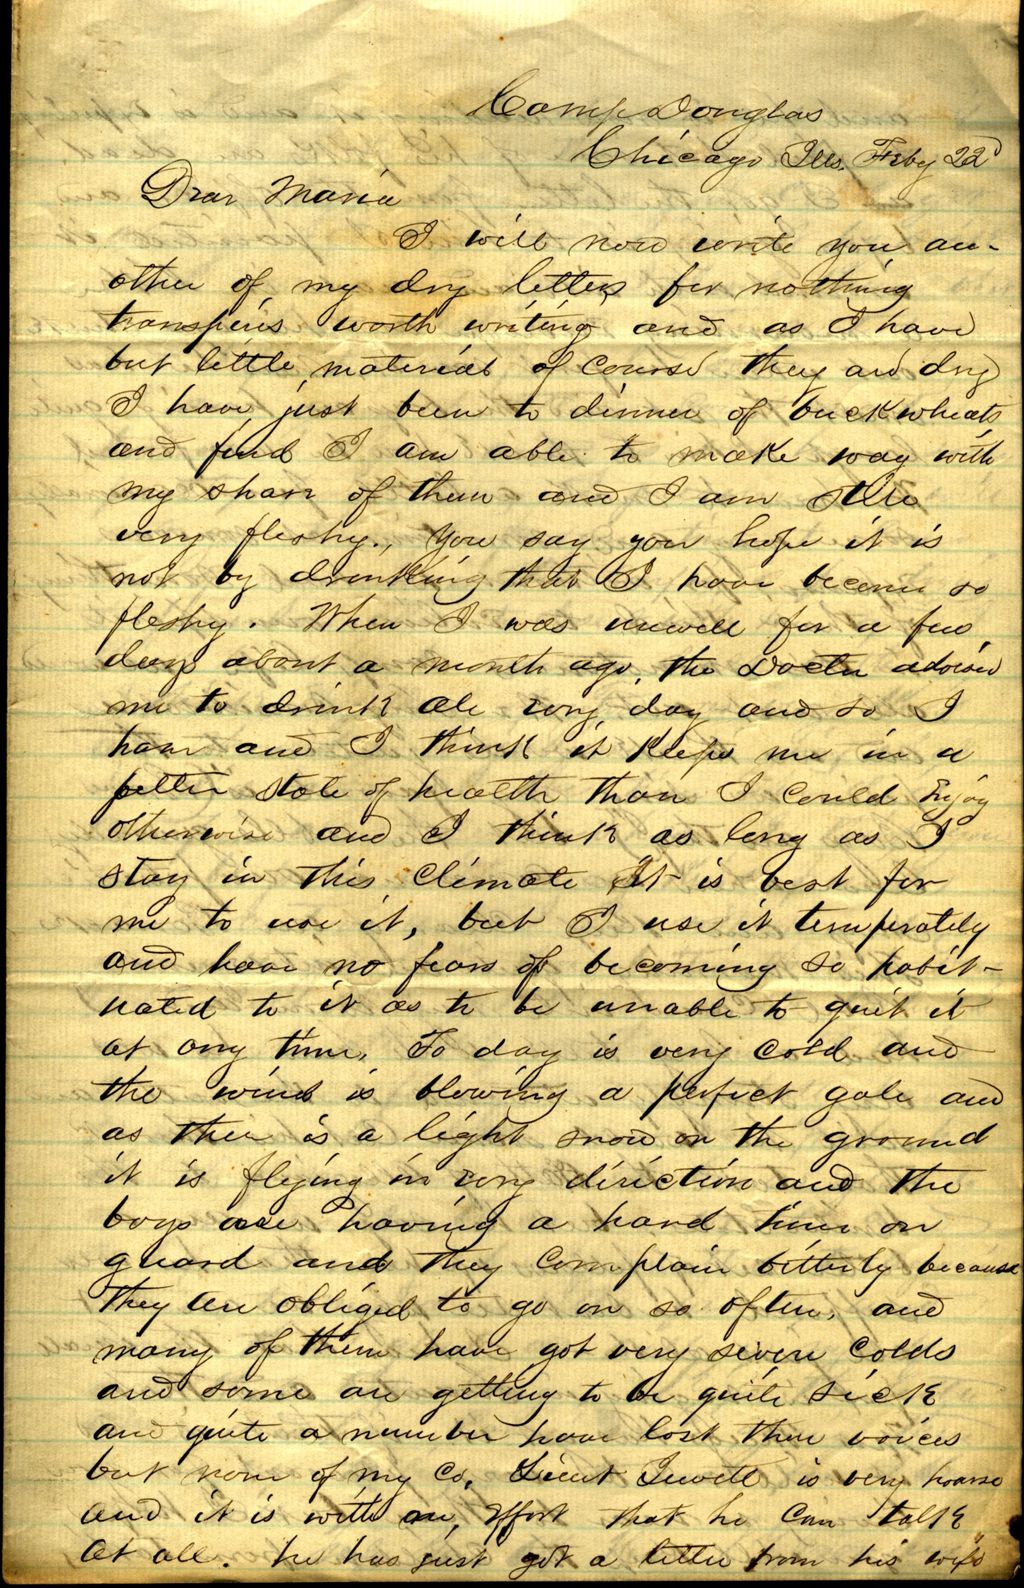 Camp Douglas
Chicago Ills. Feby 22d
Dear Maria
I will now write you an-
other of my dry letters for nothing
transpires worth writing and as I have
but little material of course they are dry
I have just been to dinner of buckwheats
and find I am able to make way with
my share of them and I am still
very fleshy., you say you hope it is
not by drinking that I have become so
fleshy. When I was unwell for a few
days about a month ago, the Doctor advised
me to drink ale every day and so I
have and I think it keeps me in a
better state of health than I could Enjoy
otherwise and I think as long as I
stay in this climate It is best for
me to use it, but I use it temperately
and have no fears of becoming so habit-
uated to it as to be unable to quit it
at any time. To day is very cold and
the wind is blowing a perfect gale and
as there is a light snow on the ground
it is flying in every direction and the
boys are having a hard time on
guard and they complain bitterly because
they are obliged to go on so often, and
many of them have got very severe colds
and some are getting to be quite sick
and quite a number have lost their voices
but none of my Co. Lieut Jewett is very hoarse
and it is with an effort that he can talk
at all. he has just got a letter from his wife